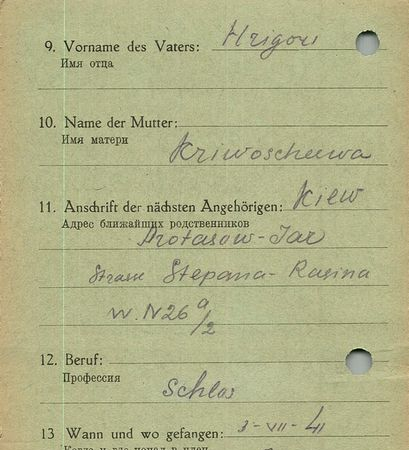 9. Vorname des Vaters: Hrigori
Имя отца
10. Name der Mutter:
Имя матери
Kriwoscheewa
11. Anschrift der nächsten Angehörigen: Kiew
Адрес ближайших родственников
Protasow-Jar
Strasse Stepana-Rasina
W. N26 a/2
12. Beruf:
Профессия
Schlos
13 Wann und wo gefangen: 3-VII-41
Когда и где попал в плен